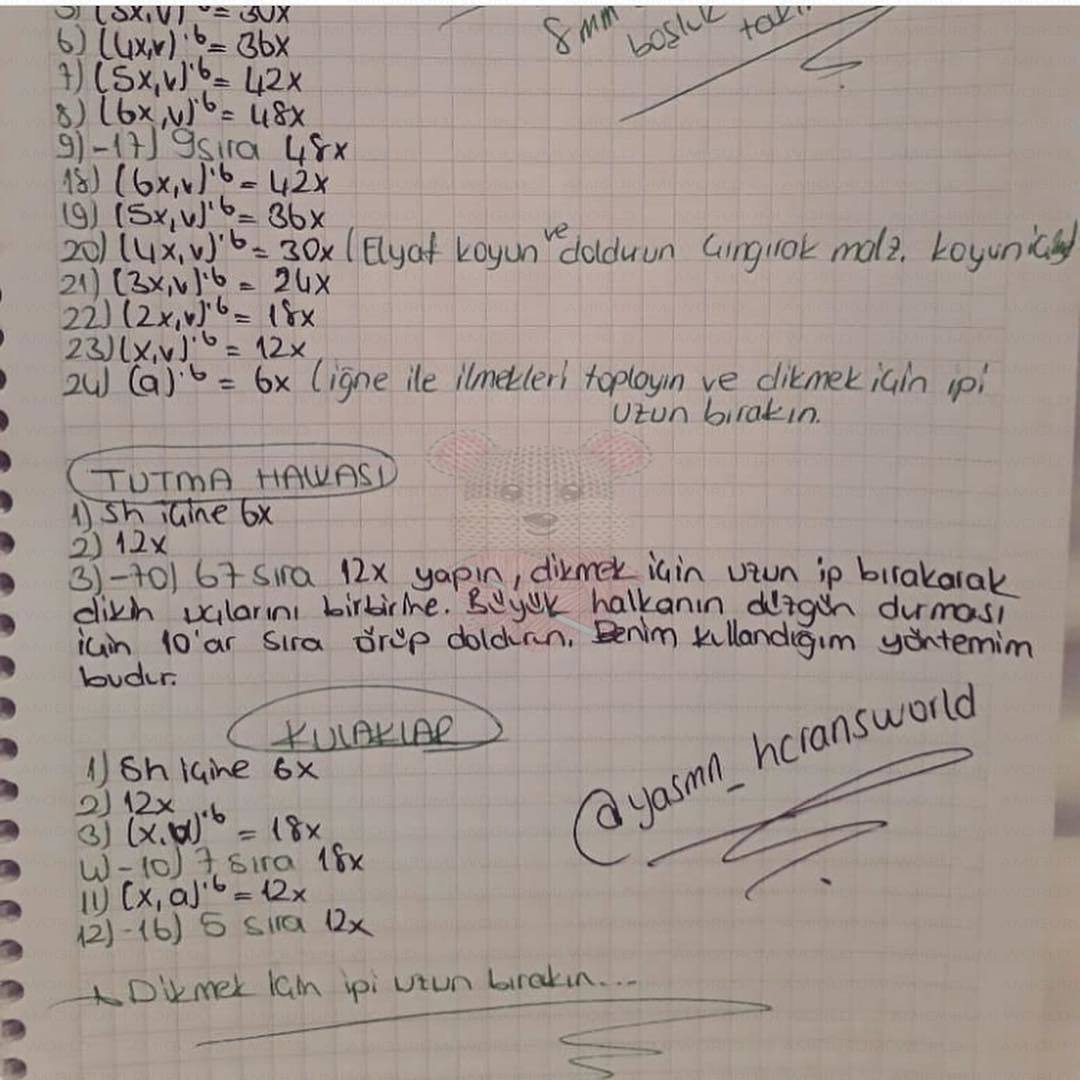 8mm
boşluk
5) (3x,v)·6 = 30x
6) (4x,v)·6 = 36x
7) (5x,v)·6 = 42x
8) (6x,v)·6 = 48x
9)-17) 9sıra 48x
18) (6x,v)·6 = 42x
19) (5x,v)·6 = 36x
20) (4x,v)·6 = 30x (Elyaf koyun ve doldurun Çıngırak malz. koyun
21) (3x,v)·6 = 24x
22) (2x,v)·6 = 18x
23) (x,v)·6 = 12x
24) (a)·6 = 6x (iğne ile ilmekleri toplayın ve dikmek için ipi
uzun bırakın.
TUTMA HALKASI
1) Sh içine 6x
2) 12x
3)-70) 67 sıra 12x yapın, dikmek için uzun ip bırakarak
dikin uçlarını birbirine. Büyük halkanın düzgün durması
için 10'ar sıra örüp doldurun. Benim kullandığım yöntemim
budur.
KULAKLAR
1) Sh içine 6x
2) 12x
3) (x,v)·6 = 18x
4)-10) 7 sıra 18x
11) (x,a)·6 = 12x
12)-16) 5 sıra 12x
Dikmek için ipi uzun bırakın...
@yasmn_hcransworld